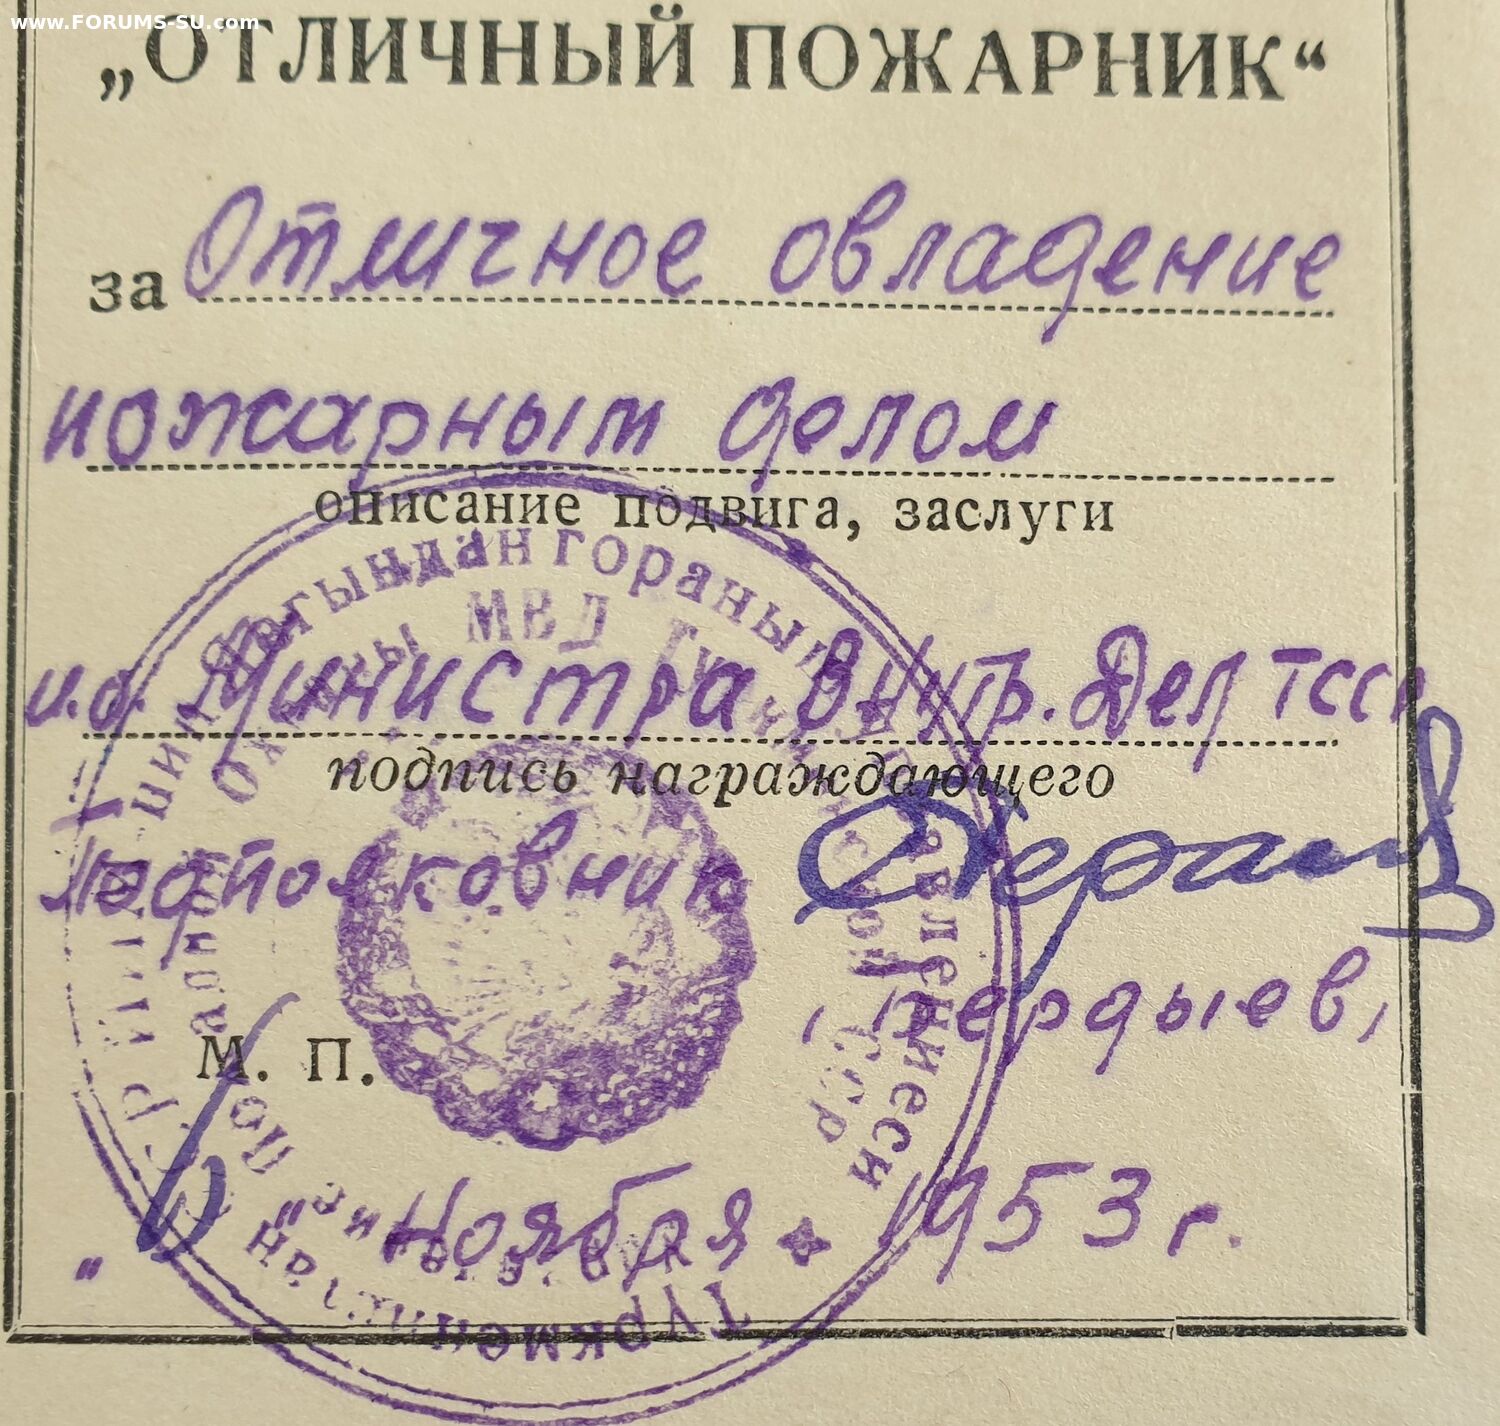 www.FORUMS-SU.com
„ОТЛИЧНЫЙ ПОЖАРНИК“
за Отличное овладение
пожарным делом
описание подвига, заслуги
и.о. Министра Внутр. Дел ТССР
подпись награждающего
подполковник
Бердыев
М. П.
„6" Ноября 1953 г.
Охраны МВД